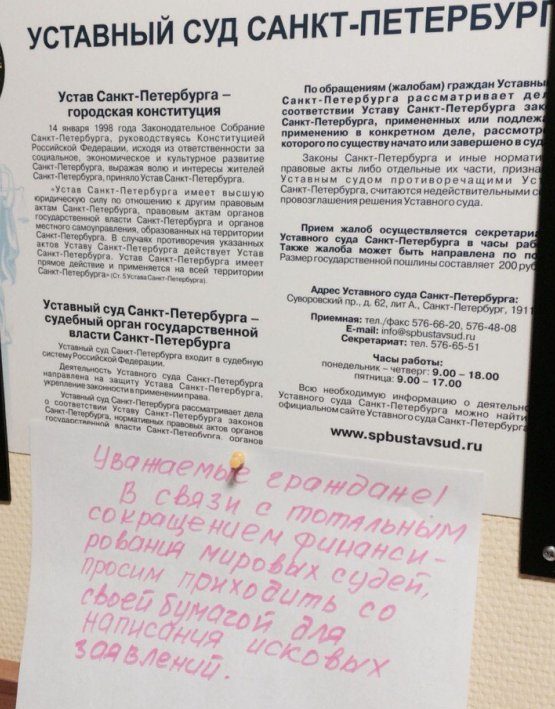 УСТАВНЫЙ СУД САНКТ-ПЕТЕРБУРГ
Устав Санкт-Петербурга –
городская конституция
14 января 1998 года Законодательное Собрание
Санкт-Петербурга, руководствуясь Конституцией
Российской Федерации, исходя из ответственности за
социальное, экономическое и культурное развитие
Санкт-Петербурга, выражая волю и интересы жителей
Санкт-Петербурга, приняло Устав Санкт-Петербурга.
«Устав Санкт-Петербурга имеет высшую
юридическую силу по отношению к другим правовым
актам Санкт-Петербурга, правовым актам органов
государственной власти Санкт-Петербурга и органов
местного самоуправления, образованных на территории
Санкт-Петербурга. В случаях противоречия указанных
актов Уставу Санкт-Петербурга действует Устав
Санкт-Петербурга. Устав Санкт-Петербурга имеет
прямое действие и применяется на всей территории
Санкт-Петербурга» (Ст. 5 Устава Санкт-Петербурга).
Уставный суд Санкт-Петербурга –
судебный орган государственной
власти Санкт-Петербурга
Уставный суд Санкт-Петербурга входит в судебную
систему Российской Федерации.
Деятельность Уставного суда Санкт-Петербурга
направлена на защиту Устава Санкт-Петербурга,
укрепление законности в применении права.
Уставный суд Санкт-Петербурга рассматривает дела
о соответствии Уставу Санкт-Петербурга законов
Санкт-Петербурга, нормативных правовых актов органов
государственной власти Санкт-Петербурга, органов
По обращениям (жалобам) граждан Уставны
Санкт-Петербурга рассматривает дел
соответствии Уставу Санкт-Петербурга зак
Санкт-Петербурга, примененных или подлежа
применению в конкретном деле, рассмотр
которого по существу начато или завершено в суд
Законы Санкт-Петербурга и иные нормати
правовые акты либо отдельные их части, призна
Уставным судом противоречащими Уст
Санкт-Петербурга, считаются недействительными с
провозглашения решения Уставного суда.
Прием жалоб осуществляется секретариа
Уставного суда Санкт-Петербурга в часы раб
Также жалоба может быть направлена по по
Размер государственной пошлины составляет 200 руб
Адрес Уставного суда Санкт-Петербурга:
Суворовский пр., д. 62, лит А., Санкт-Петербург, 1911
Приемная: тел./факс 576-66-20, 576-48-08
E-mail: info@spbustavsud.ru
Секретариат: тел. 576-65-51
Часы работы:
понедельник – четверг: 9.00 - 18.00
пятница: 9.00 - 17.00
Всю необходимую информацию о деятельно
Уставного суда Санкт-Петербурга можно найти
официальном сайте Уставного суда Санкт-Петербурга
www.spbustavsud.ru
Уважаемые граждане!
В связи с тотальным
сокращением финанси-
рования мировых судей,
просим приходить со
своей бумагой для
написания исковых
заявлений.